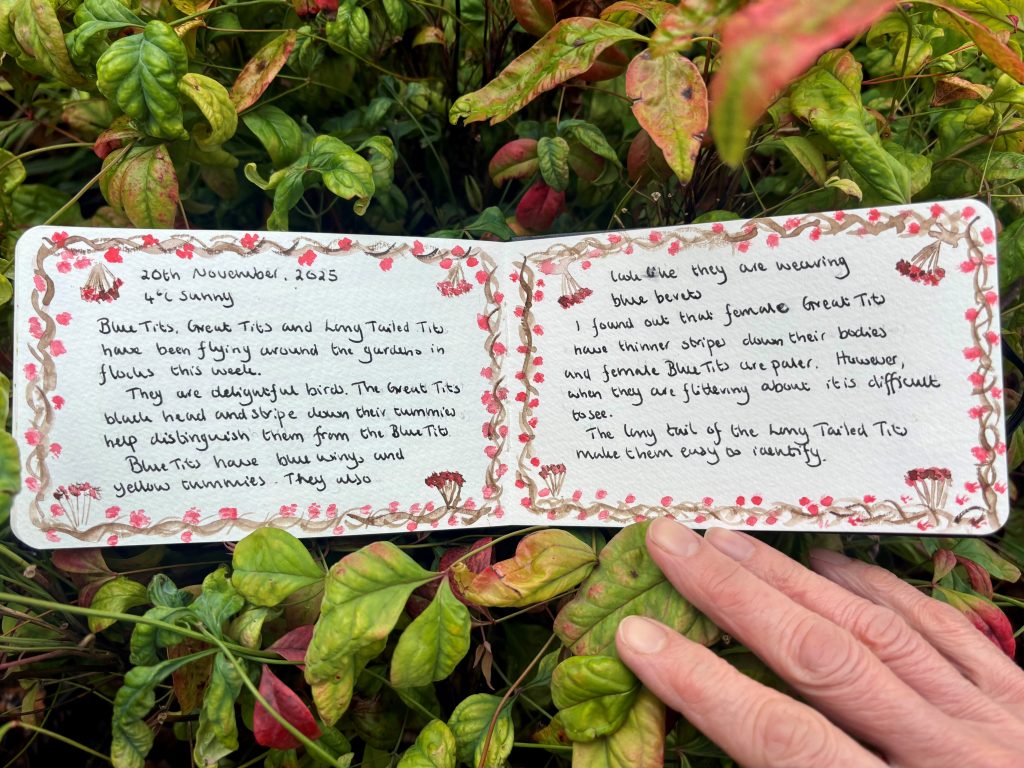 20th November, 2025
4°C Sunny
Blue Tits, Great Tits and Long Tailed Tits
have been flying around the gardens in
flocks this week.
They are delightful birds. The Great Tits
black head and stripe down their tummies
help distinguish them from the Blue Tits
Blue Tits have blue wings and
yellow tummies. They also
look like they are wearing
blue berets
I found out that female Great Tits
have thinner stripes down their bodies
and female Blue Tits are paler. However,
when they are flittering about it is difficult
to see.
The long tail of the Long Tailed Tits
make them easy to identify.